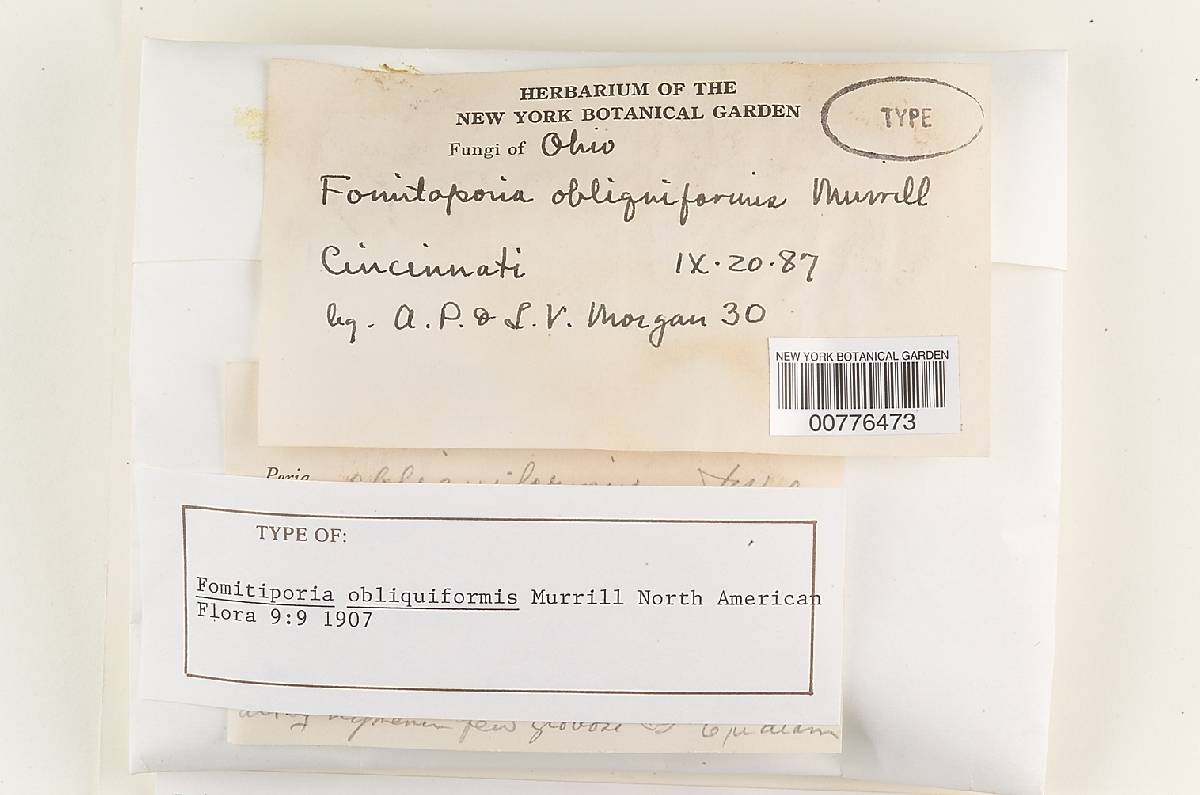 HERBARIUM OF THE
NEW YORK BOTANICAL GARDEN
TYPE
Fungi of Ohio
Fomitoporia obliquiformis Murrill
Cincinnati IX·20·87
leg. A. P. & L. V. Morgan 30
NEW YORK BOTANICAL GARDEN
00776473
Poria obliquiformis
TYPE OF:
Fomitiporia obliquiformis Murrill North American
Flora 9:9 1907
few globose